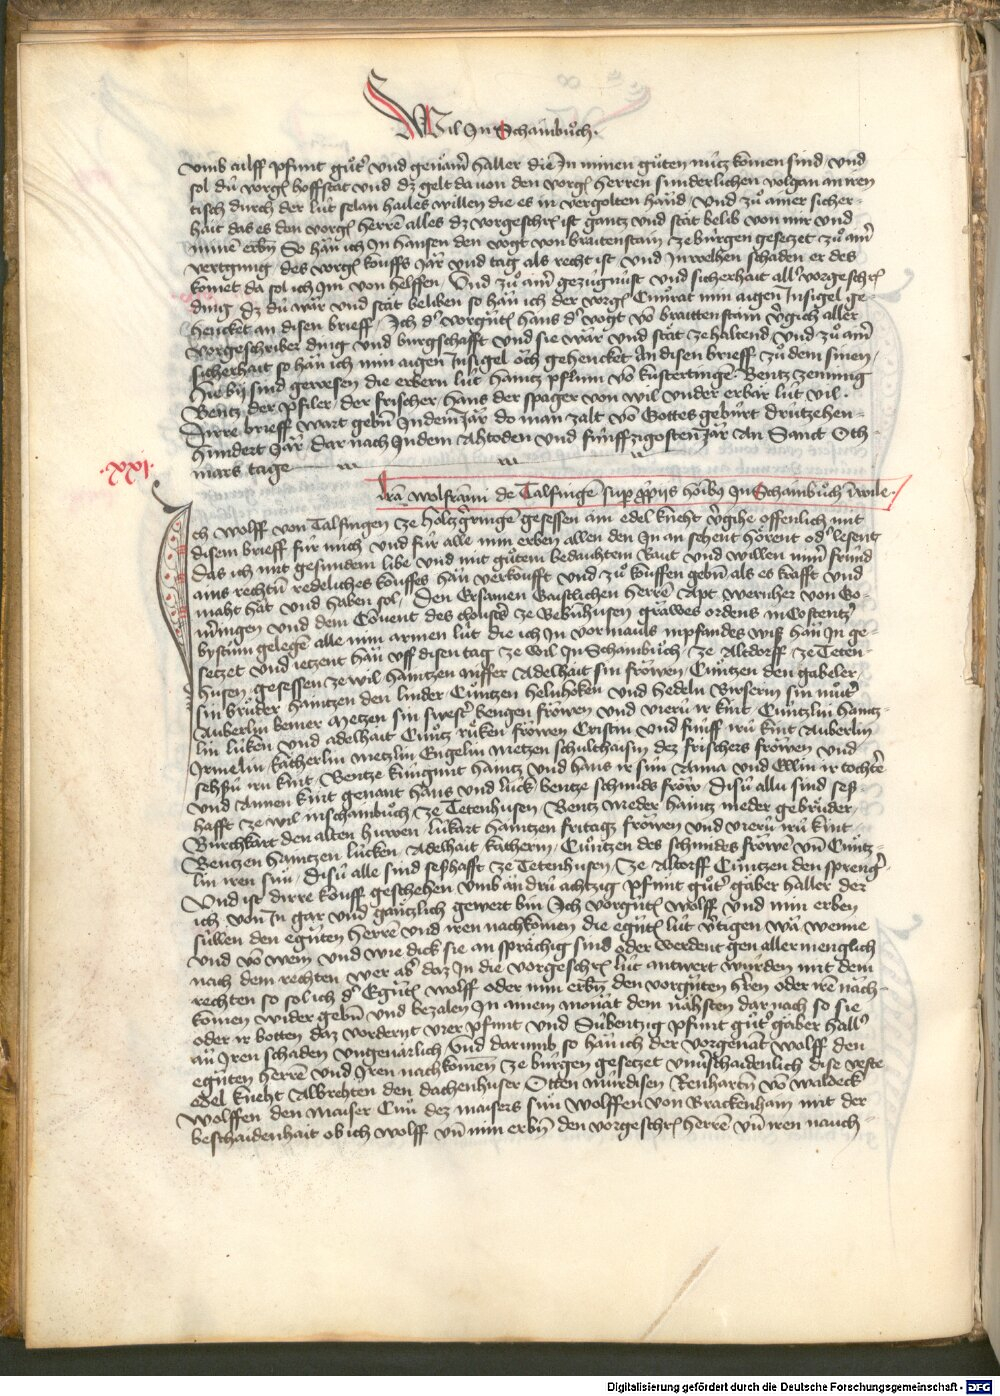 Wil In Schainbůch.
vmb ailff pfunt gůt' vnd genäm' haller die In minen gůten nutz komen sind vnd
sol dú vorg hoffstat vnd dz gelt da von den vorg herren sunderlichen volgan an iren
tisch durch der lút selan hailes willen die es in vergolten hand / Vnd zů ainer sicher-
hait das es den vorg herrē alles dz vorgeschr ist gantz vnd stät belib von mir vnd
minē erbn So han ich In hansen den vogt von braitenstain ze bürgen gesetzet zů ain'
vertgung des vorg kouffs Jär vnd tag als recht ist vnd In welhen schaden er des
komet da sol ich Im von helffen / Vnd zů ain' gezúgnúst vnd sicherhait all' vorgeschr
ding dz dú wär vnd stät beliben so hän ich der vorg Cunrat min aigen Insigel ge-
hencket an disen brieff / Ich d' vorgnt hans d' vogt vō braittenstain v'gich aller
vorgeschriber ding vnd burgschafft vnd sie wär vnd stät ze haltend vnd zů ain'
sicherhait so hän ich min aigen Insigel öch gehencket An disen brieff zů dem sinen /
hie bÿ sind gewesen die erbern lút haintz pflum vō kustertinge Bentz zeming
Bentz der pfiler / der frischer / hans der spager von wil vnder erbär lút vil .
Dirre brieff wart gebn In dem Jär do man zalt vō Gottes gebúrt drútzehen-
hundert Jär Dar nach In dem Ahtoden vnd fúnffzigosten Jär An Sanct Oth-
mars tage
.xxi.
Lrā wolframi de Talfingē sup p̄pijs hōibus In Schainbůch i wile.
Ich wolff von Talfingen ze holtzgringē gesessen ain edel kneht v'gihe offenlich mit
disem brieff fúr mich vnd fúr alle min erben allen den In an sehent hörent od' lesent
Das ich mit gesundem libe vnd mit gůtem bedauchtem Raut vnd willen min' frúnd
ains rechtn redeliches kouffes hän verkoufft vnd zů kouffen gebn als es krafft vnd
maht hät vnd haben sol / Den Ersamen Gaistlichen herrē Apt wernher von Go-
mringen vnd dem Couent des closters ze Bebnhusen gräwes ordens in Costentz'
bystům gelegē alle min armen lút die ich In vormauls in pfandes wiß hän In ge-
setzet vnd ietzent hän vff disen tag ze wil In Schainbůch / ze Altdorff ze Teten-
husen / gesessen ze wil haintzen auffer Adelhait sin fröwen Cůntzen den gabeler /
sin brůder haintzen den linder Cůntzen helnhoken vnd hedeln Birserin sin můt'
Auberlin beiner Metzen sin swest' bengen fröwen vnd vierú ir kint Cůntzlin haintz-
lin lúken vnd adelhait Cůntz rúken fröwen Cristin vnd fúnff irú kint Auberlin
Irmelin katherlin Metzlin Engelin Metzen schulthaisin dez frischers fröwen vnd
sehsú irú kint Bentze kúngunt haintz vnd hans ir sún Anna vnd Ellin ir tochtē
vnd Annen kint genant hans vnd lúck bentze schmids fröw / Disú allú sind seß-
hafft ze wil in schainbůch ze Tetenhusen / Bentz meder haintz meder gebrúder /
Burchkart den alten huwen / lúkart haintzen fritags fröwen vnd vierú irú kint
Bentzen haintzen lúcken Adelhait katherin / Cůntzen des schmides fröwē vn Cůntz-
lin iren sún / Disú alle sind seßhafft ze Tetenhusen / Ze Altorff Cůntzen den spreng'
Vnd ist dirre kouff geschehen vmb än drú achtzig pfunt gůt' gäber haller der
ich von In gar vnd gäntzlich gewert bin Ich vorgnt wolff vnd min erben
súllen den egntē herrē vnd iren nachkomen die egnt lút v'tigen wä wenne
vnd vō wem vnd wie dick sie an sprächig sind oder werdent gen aller menglich
nach dem rechten wer ab' daz In die vorgeschr lút antwert wurden mit dem
rechten so sol ich d' Egnt wolff oder min erbn den vorgntē h'ren oder irē näch-
komen wider gebn vnd bezalen In ainem monät dem nähsten dar nach so sie
oder ir botten daz vordernt vier pfunt vnd Sibentzig pfunt gůt' gäber hall'
än Iren schaden vngenärlich / Vnd darumb so hän ich der vorgenāt wolff den
egntē herrē vnd Iren nachkomēn ze búrgen gesetzet vnu'schaidenlich dise veste
edel kneht Albrehten den dachenhuser Otten wurdisen Renhartn vō waldeck
wolffen den maiser Cůn dez maisers sún wolffen von Brackenhain mit der
beschaidenhait ob ich wolff vn min erbn den vorgeschr herrē vn iren nauch-
Digitalisierung gefördert durch die Deutsche Forschungsgemeinschaft - DFG